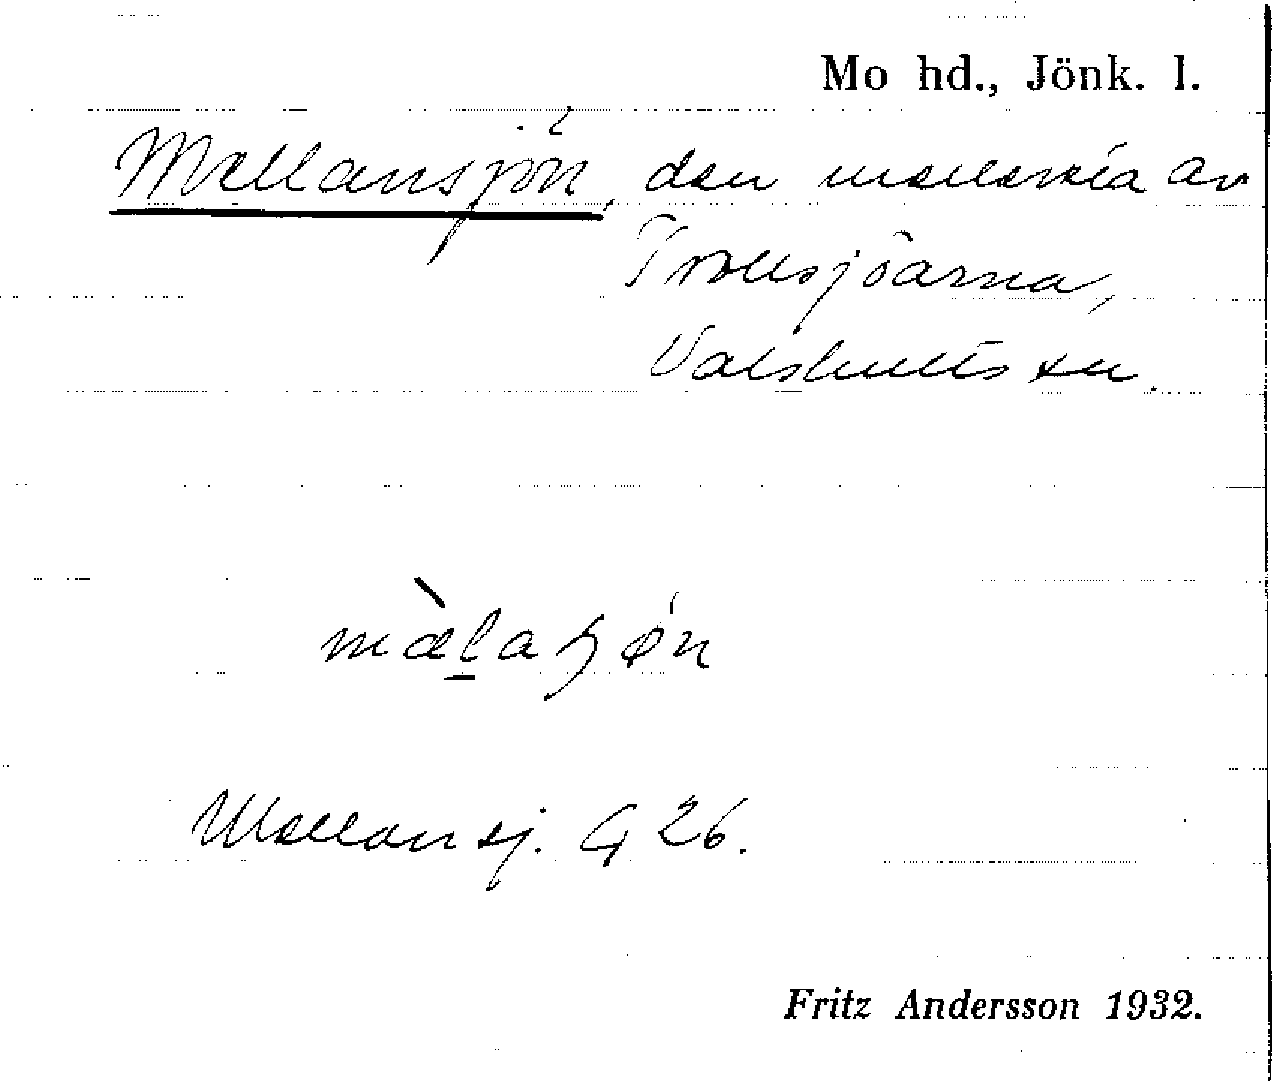 Mo hd., Jönk. l.
Mellansjön, den mellersta av
Trollsjöarna,
Valshults sn.
Mellansj. G 26.
Fritz Andersson 1932.